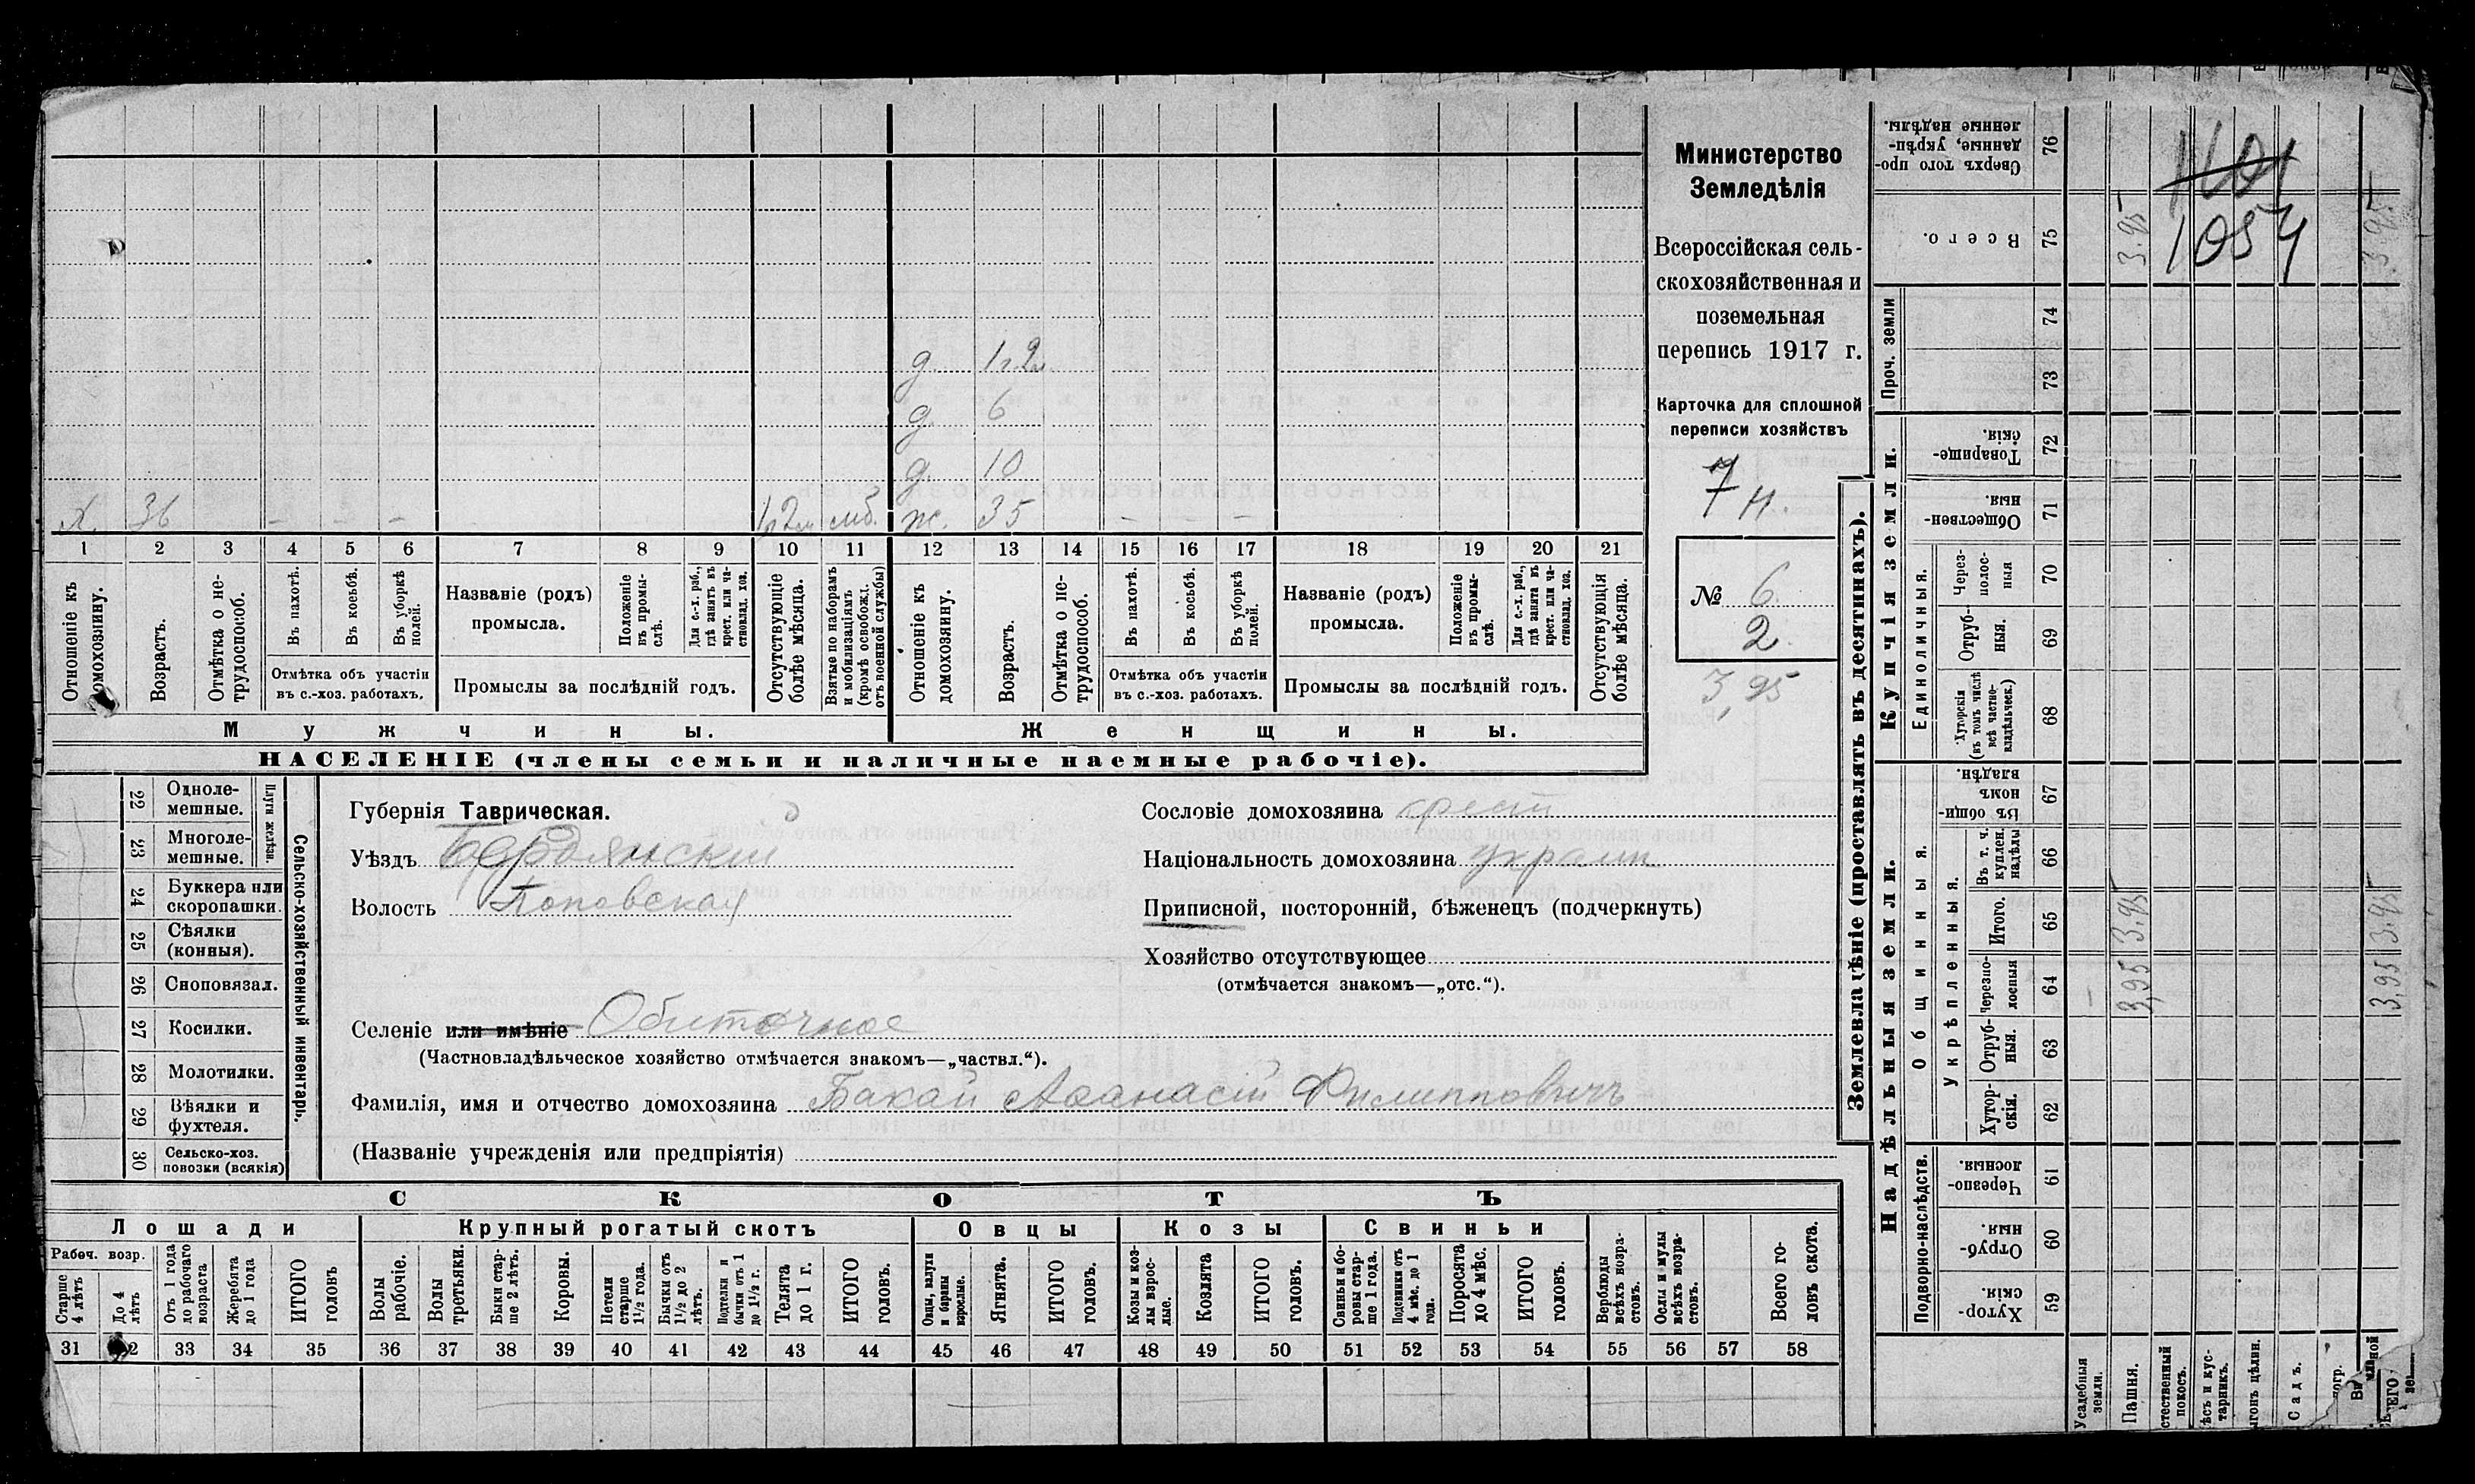 Министерство
Земледѣлія
Всероссійская сель-
скохозяйственная и
поземельная
перепись 1917 г.
Карточка для сплошной
переписи хозяйствъ
7 н.
№ 6.
2
3,95
д. 1г.2м.
д. 6
д. 10
х. 36 - - - 1г.2м. моб. ж. 35 - - -
1 2 3 4 5 6 7 8 9 10 11 12 13 14 15 16 17 18 19 20 21
Отношеніе къ домохозяину.
Возрастъ.
Отмѣтка о не-трудоспособ.
Въ пахотѣ.
Въ косьбѣ.
Въ уборкѣ полей.
Отмѣтка объ участіи въ с.-хоз. работахъ.
Названіе (родъ) промысла.
Положеніе въ промы-слѣ.
Для с.-х. раб., гдѣ занятъ въ крест. или ча-стновлад. хоз.
Промыслы за послѣдній годъ.
Отсутствующіе болѣе мѣсяца.
Взятые по наборамъ и мобилизаціямъ (кромѣ освобожд. отъ военной службы)
Отношеніе къ домохозяину.
Возрастъ.
Отмѣтка о не-трудоспособ.
Въ пахотѣ.
Въ косьбѣ.
Въ уборкѣ полей.
Отмѣтка объ участіи въ с.-хоз. работахъ.
Названіе (родъ) промысла.
Положеніе въ промы-слѣ.
Для с.-х. раб., гдѣ занята въ крест. или ча-стновлад. хоз.
Промыслы за послѣдній годъ.
Отсутствующія болѣе мѣсяца.
Мужчины. Женщины.
НАСЕЛЕНІЕ (члены семьи и наличные наемные рабочіе).
Сельско-хозяйственный инвентарь.
Плуги желѣзн.
22 Одноле-мешные.
23 Многоле-мешные.
24 Буккера или скоропашки.
25 Сѣялки (конныя).
26 Сноповязал.
27 Косилки.
28 Молотилки.
29 Вѣялки и фухтеля.
30 Сельско-хоз. повозки (всякія)
Губернія Таврическая.
Уѣздъ Бердянскій
Волость Поповская
Сословіе домохозяина крест
Національность домохозяина украин
Приписной, посторонній, бѣженецъ (подчеркнуть)
Хозяйство отсутствующее
(отмѣчается знакомъ—„отс.“).
Селеніе или имѣніе Обиточное
(Частновладѣльческое хозяйство отмѣчается знакомъ—„частвл.“).
Фамилія, имя и отчество домохозяина Бакай Аѳанасій Филипповичъ
(Названіе учрежденія или предпріятія)
СКОТЪ
Лошади Крупный рогатый скотъ Овцы Козы Свиньи
Рабоч. возр.
Старше 4 лѣтъ
До 4 лѣтъ
Отъ 1 года до рабочаго возраста
Жеребята до 1 года
ИТОГО головъ
Волы рабочіе.
Волы третьяки.
Быки стар-ше 2 лѣтъ.
Коровы.
Нетели старше 1½ года.
Бычки отъ 1½ до 2 лѣтъ.
Подтелки и бычки отъ 1 до 1½ г.
Телята до 1 г.
ИТОГО головъ.
Овцы, валухи и бараны взрослые.
Ягнята.
ИТОГО головъ.
Козы и коз-лы взрос-лые.
Козлята
ИТОГО головъ.
Свиньи и бо-ровы стар-ше 1 года.
Подсвинки отъ 4 мѣс. до 1 года.
Поросята до 4 мѣс.
ИТОГО головъ.
Верблюды всѣхъ возра-стовъ.
Ослы и мулы всѣхъ возра-стовъ.
Всего го-ловъ скота.
31 32 33 34 35 36 37 38 39 40 41 42 43 44 45 46 47 48 49 50 51 52 53 54 55 56 57 58
Землевладѣніе (проставлять въ десятинахъ).
Надѣльныя земли. Купчія земли. Проч. земли
Подворно-наслѣдств.
Общинныя.
Укрѣпленныя.
Единоличныя.
Хутор-скія. 59
Отруб-ныя. 60
Черезпо-лосныя. 61
Хутор-скія. 62
Отруб-ныя. 63
Черезпо-лосныя 64
Итого. 65
Въ т. ч. куплен. надѣлы 66
Въ общи-номъ владѣн. 67
Хуторскія (въ томъ числѣ всѣ частно-владѣльческ.) 68
Отруб-ныя. 69
Через-полос-ныя 70
Обществен-ныя. 71
Товарище-скія. 72
73
74
Всего. 75
Сверхъ того про-данные, укрѣп-ленные надѣлы. 76
Усадебныя земли.
Пашня.
3,95 3.95 3.95
3,95 3.95 3.95
1101
1054
Садъ.